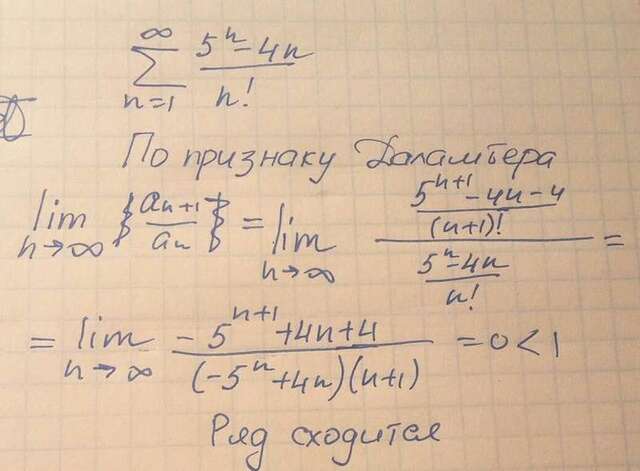 ∞
∑ (5ⁿ-4n)/n!
n=1
По признаку Даламтера
lim {aₙ₊₁/aₙ} = lim ((5ⁿ⁺¹-4n-4)/(n+1)!)/((5ⁿ-4n)/n!) =
n→∞ n→∞
= lim (-5ⁿ⁺¹+4n+4)/((-5ⁿ+4n)(n+1)) = 0<1
n→∞
Ряд сходится